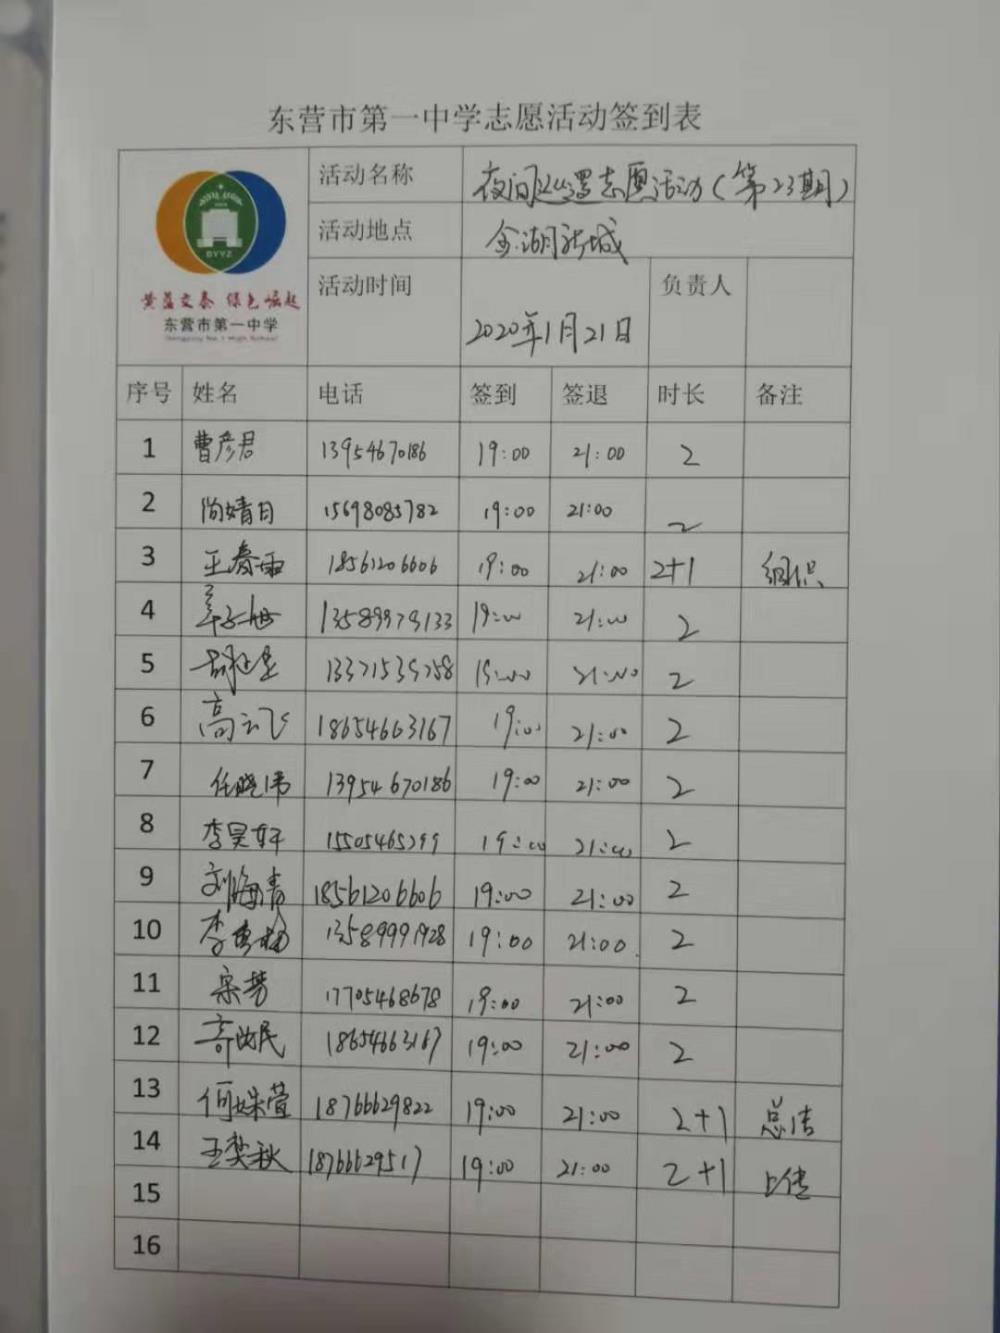 东营市第一中学志愿活动签到表
活动名称 夜间巡逻志愿活动(第23期)
活动地点 金湖新城
活动时间 2020年1月21日 负责人
DYYZ
黄蓝交泰 绿色崛起
东营市第一中学
Dongying No.1 High School
序号 姓名 电话 签到 签退 时长 备注
1 曹彦君 13954670186 19:00 21:00 2
2 尚婧日 15698085782 19:00 21:00 2
3 王春雨 18561206606 19:00 21:00 2+1 组织
4 13589979133 19:00 21:00 2
5 19:00 21:00 2
6 高云飞 18654663167 19:00 21:00 2
7 任晓伟 13954670186 19:00 21:00 2
8 李昊轩 15505465299 19:00 21:00 2
9 刘海青 18561206606 19:00 21:00 2
10 13589991928 19:00 21:00 2
11 宋芳 17705468678 19:00 21:00 2
12 18654663167 19:00 21:00 2
13 何姝萱 18766629822 19:00 21:00 2+1 总结
14 王奕秋 18766629517 19:00 21:00 2+1 上传
15
16